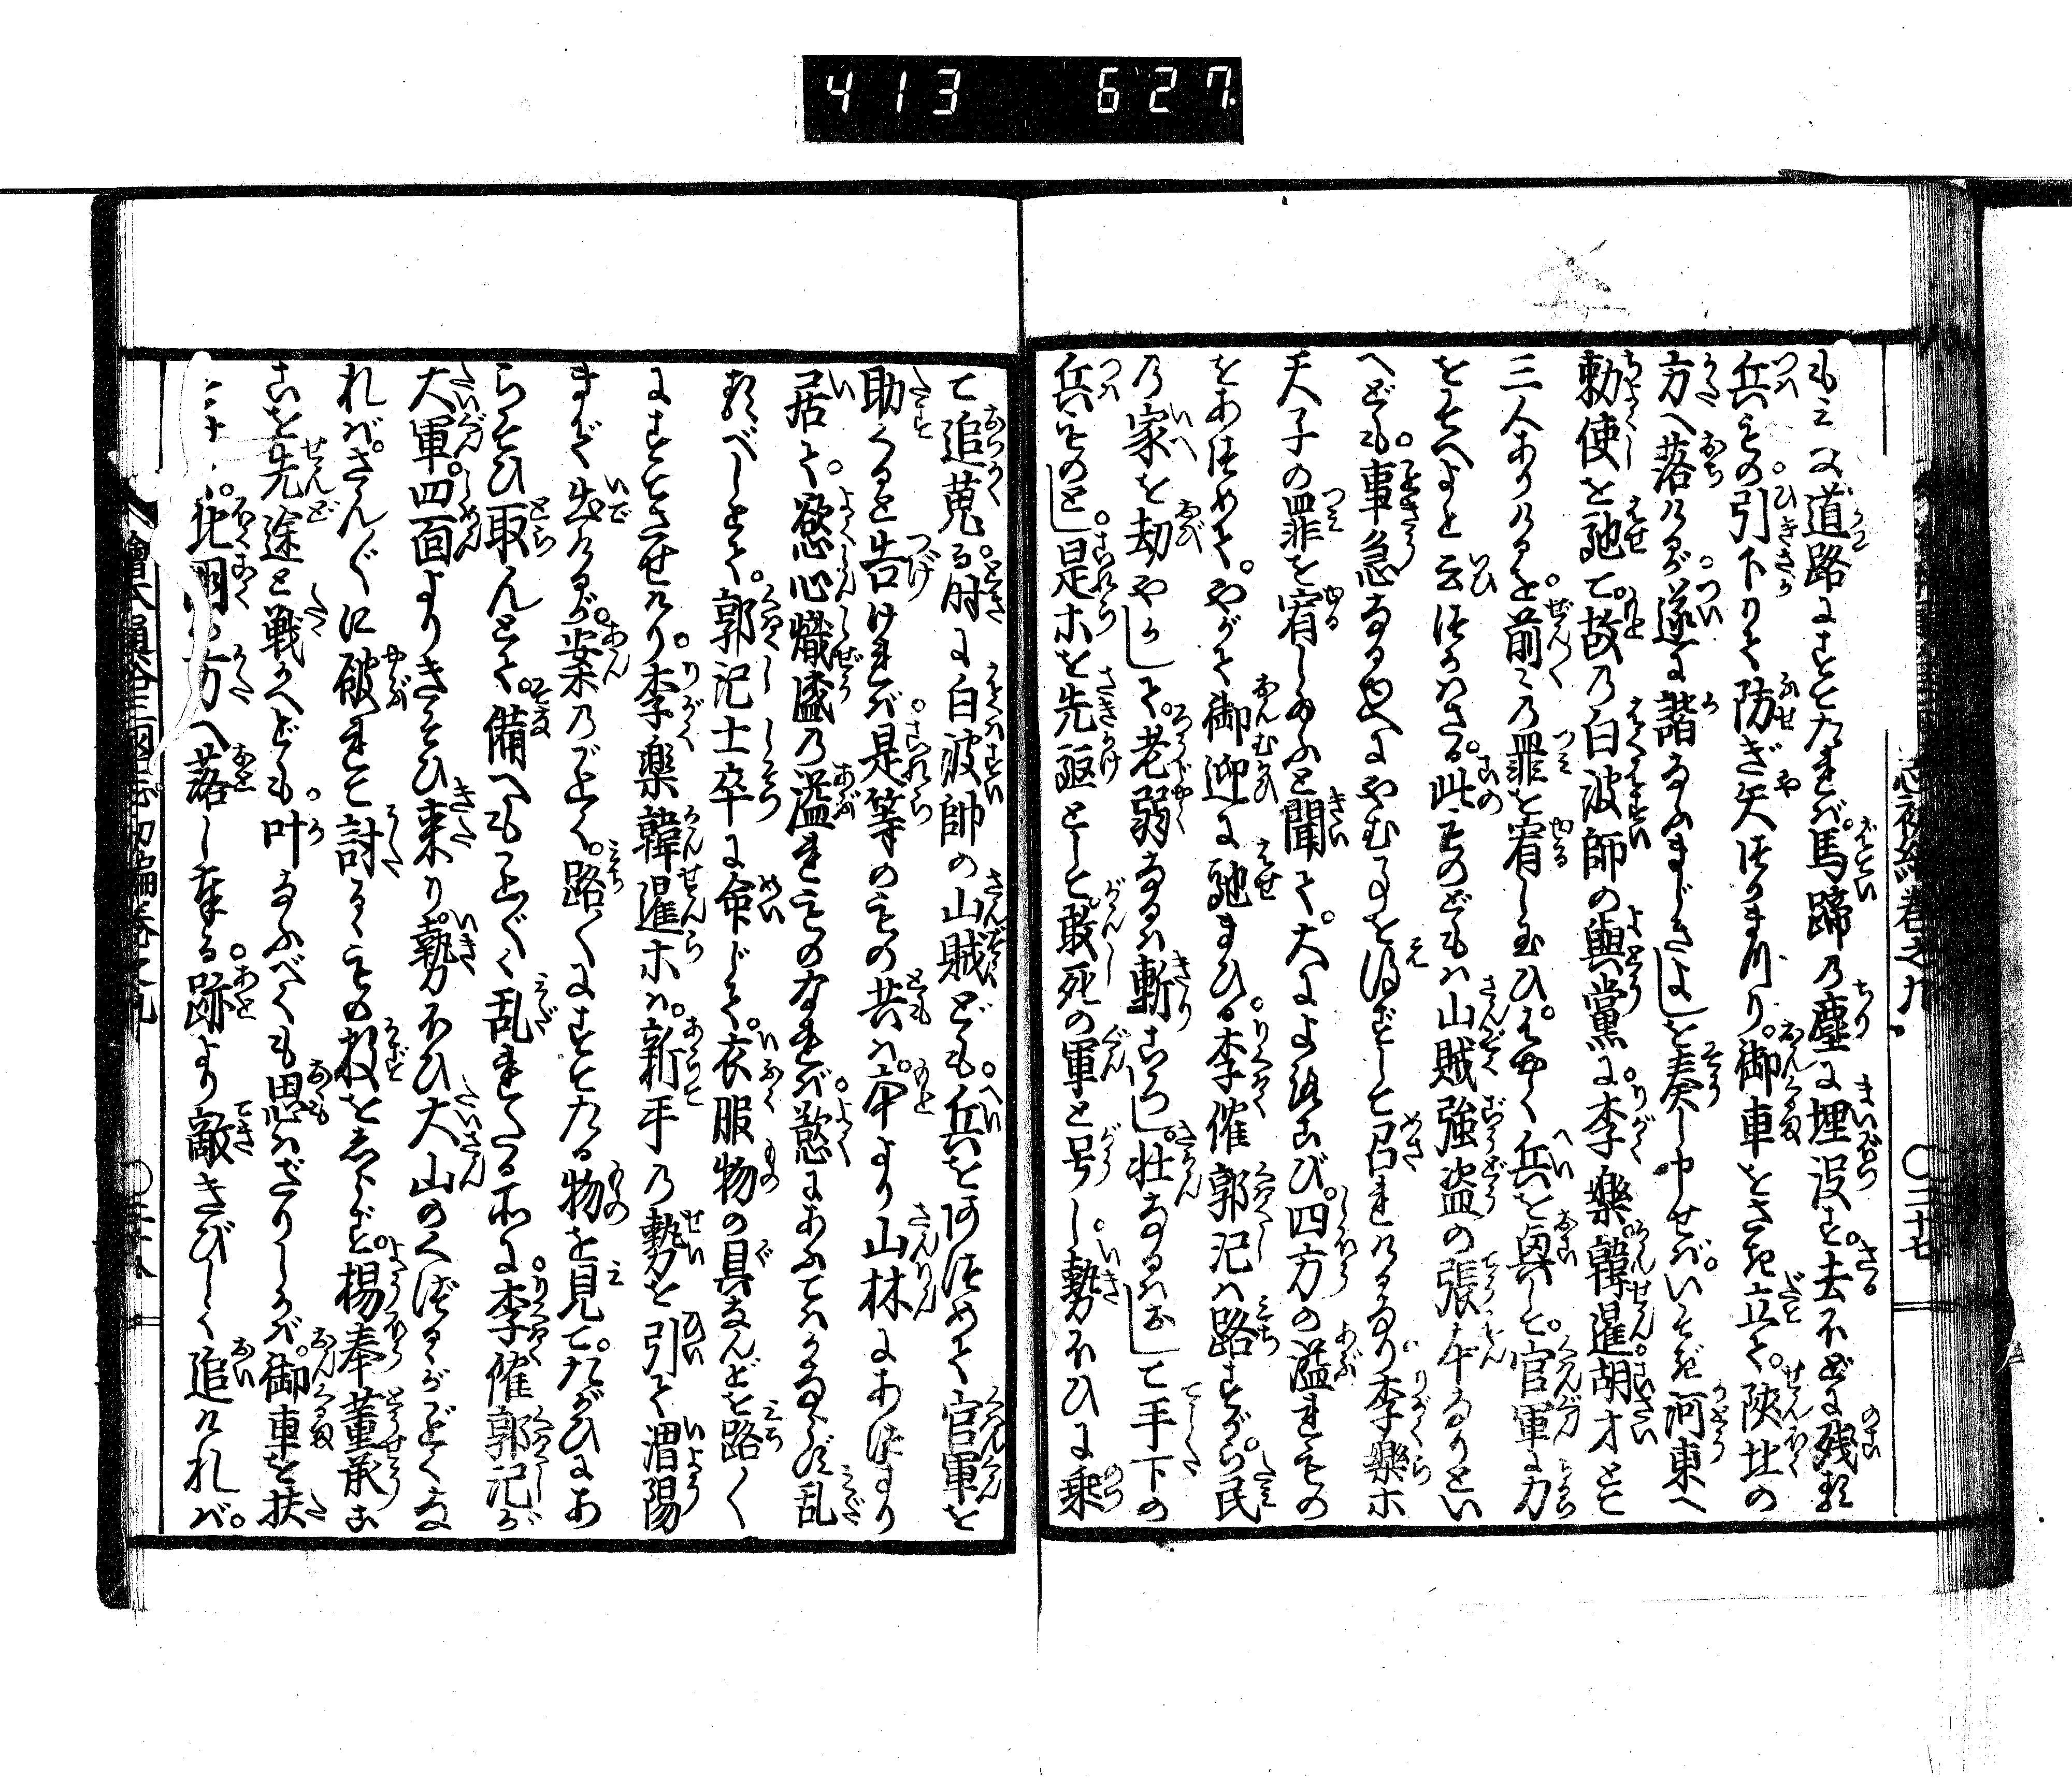 413 627
もみな道路にすてたれば。馬蹄の塵に埋没す。去ほどに残る
兵もの引下りて防ぎ矢つかまつり。御車をさき立て。陝北の
方へ落けるが。遂に詣なふまじきよしを奏し申せば。いそぎ河東へ
勅使を馳て。故の白波師の與黨に。李樂。韓暹。胡才とて
三人ありけるを。前々の罪を宥し玉ひ。はやく兵を與して。官軍に力
をそへよと云つかはさる。此ものどもは山賊強盗の張本なりとい
へども。事急なるゆへにやむことを得ずして召れけるなり李樂ホ
天子の罪を宥し玉ふと聞て。大によろこび。四方の溢れもの
をあつめて。やがて御迎に馳まひる李傕郭汜は路すがら。民
の家を劫やかして。老弱なるは斬ころし。壮なるはおして手下の
兵ものとし。是ホを先駆として敢死の軍と号し。勢ひに乗
て追蒐る。時に白波師の山賊ども。兵をあつめて官軍を
助くると告ければ。是等のもの共は。本より山林にあつまり
居て。慾心熾盛の溢れもの なれば。慾にあふてはかならず乱
るべしとて。郭汜士卒に命じて。衣服物の具なんどを路〱
にすてさせけり。李樂韓暹ホは。新手の勢を引て渭陽
まで出けるが。案のごとく。路〱にすてたる物を見て。たがひにあ
らそひ取んとて。備へもことごとく乱れたる所に。李傕郭汜が
大軍。四面よりきそひ来り。勢ひ大山のくづるゝがごとくな
れば。さんざんに破れて討るゝもの数をしらず。楊奉董承こ
こを先途と戦へども。叶なふべくも思はざりしかば。御車を扶
方へ落し奉る。跡より敵きびしく追ければ。